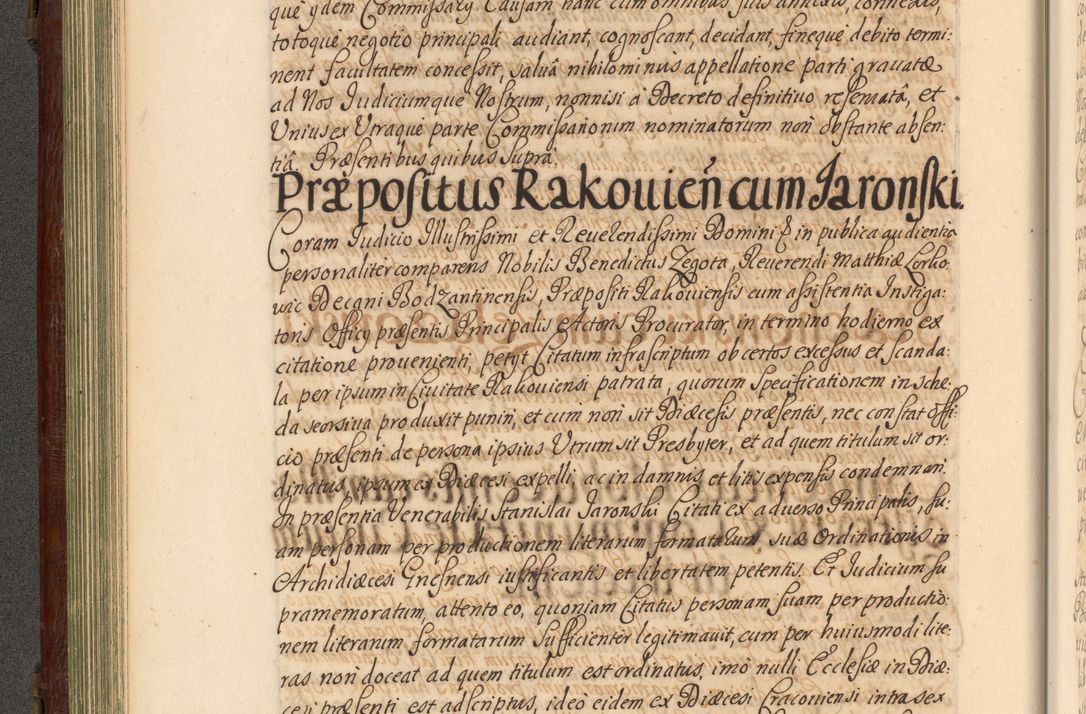 que ydem Commissary Causam hanc cum omnibus suis annexis, connexis,
totoque negotio principali audiant, cognoscant, decidant, fineque debito termi:
nent facultatem concessit, salvâ nihilominus appellatione parti gravatæ
ad Nos Iudiciumque Nostrum, nonnisi â Decreto definitivo reservatâ, et
Unius ex Utraque parte Commissariorum nominatorum non obstante absen:
tiâ. Præsentibus quibus supra.
Præpositus Rakovień cum Jaronski.
Coram Iudicio Illustrissimi et Reverendissimi Domini & in publica audientia
personaliter comparens Nobilis Benedictus Zegota, Reverendi Matthiæ Lorko:
wic Decani Bodzantinensis, Præpositi Rakoviensis cum assistentia Instiga:
toris Officy præsentis Principalis Actoris Procurator, in termino hodierno ex
citatione provenienti, petyt Citatum infrascriptum ob certos excessus et scanda:
la per ipsum in Civitate Rakoviensi patrata, quorum specificationem in sche:
da seorsiva produxit puniri, et cum non sit Diæcesis præsentis, nec constat offi:
cio præsenti de persona ipsius Utrum sit Presbyter, et ad quem titulum sit or:
dinatus, ipsum ex Diæcesi expelli, ac in damnis et litis expensis condemnari.
In præsentia Venerabilis Stanislai Jaronski Citati ex adverso Principalis, su:
am personam per productionem literarum formatarum suæ Ordinationis in
Archidiæcesi Gnesnensi iustificantis et libertatem petentis. Et Iudicium su
pramemoratum, attento eo, quoniam Citatus personam suam per productio:
nem literarum formatarum sufficienter legitimavit, cum per huiusmodi lite:
ras non doceat ad quem titulum est ordinatus, imò nulli Ecclesiæ in Diæ:
cesi præsenti est adscriptus, ideò eidem ex Diæcesi Cracoviensi intra sex